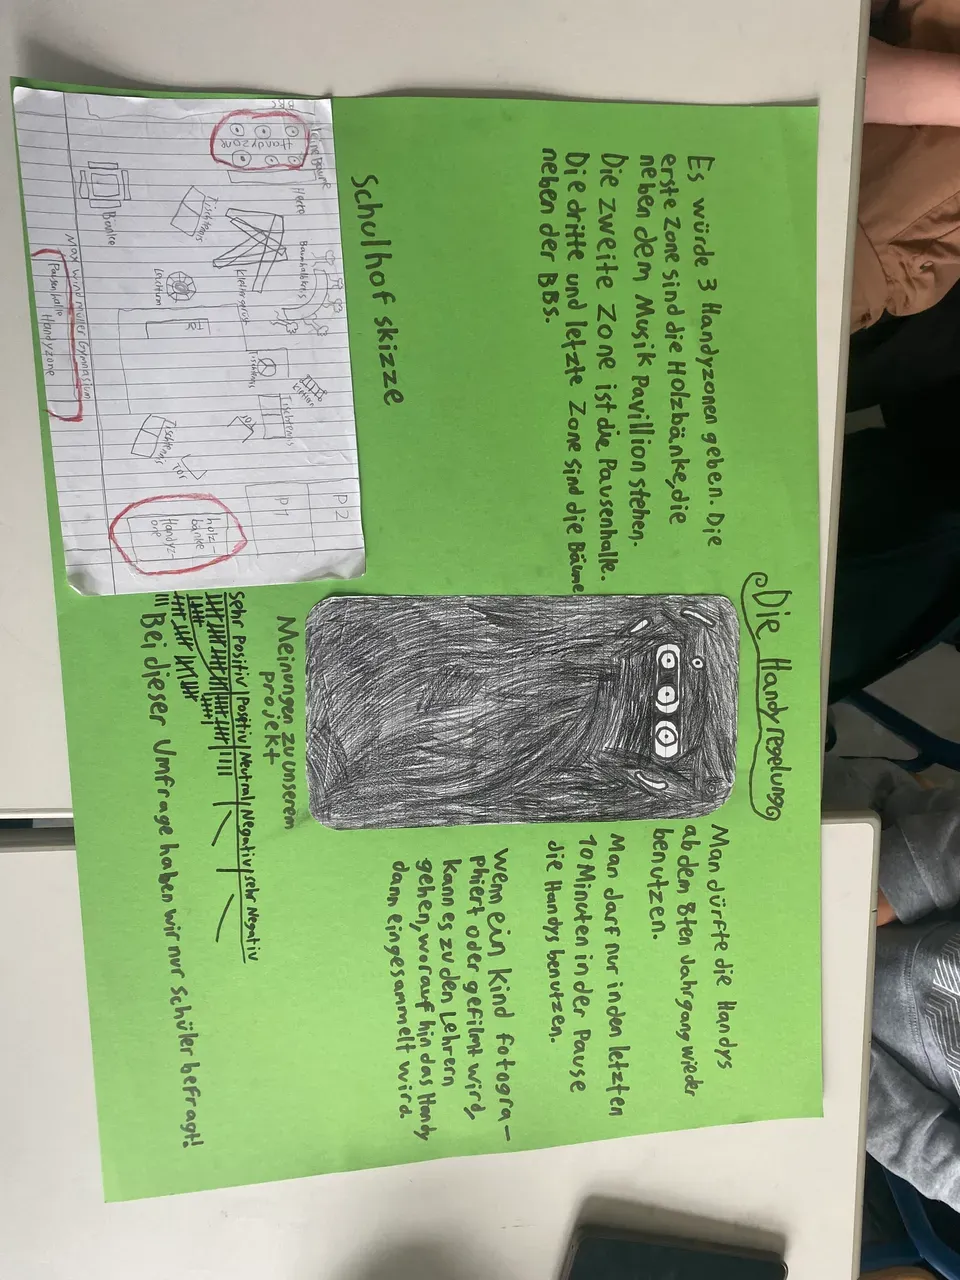 Die Handyregelung
Es würde 3 Handyzonen geben. Die
erste Zone sind die Holzbänke, die
neben dem Musik Pavillion stehen.
Die zweite Zone ist die Pausenhalle.
Die dritte und letzte Zone sind die Bäume
neben der BBS.
Schulhof skizze
Handyzone
Baumhalbkreis
Tischtenis
Klettergerüst
Bänke
Tischtenis
Tischtenis
Tischtenis
Tor
P2
P1
holz-
bänke
Handyz-
one
Max windmüller Gymnasium
Pausenhalle
Handyzone
Man dürfte die Handys
ab dem 8ten Jahrgang wieder
benutzen.
Man darf nur in den letzten
10 Minuten in der Pause
die Handys benutzen.
Wenn ein Kind fotogra-
phiert oder gefilmt wird,
kann es zu den Lehrern
gehen, worauf hin das Handy
dann eingesammelt wird.
Meinungen zu unserem
projekt
Sehr Positiv/Positiv/Neutral/Negativ/sehr Negativ
!!! Bei dieser Umfrage haben wir nur Schüler befragt!